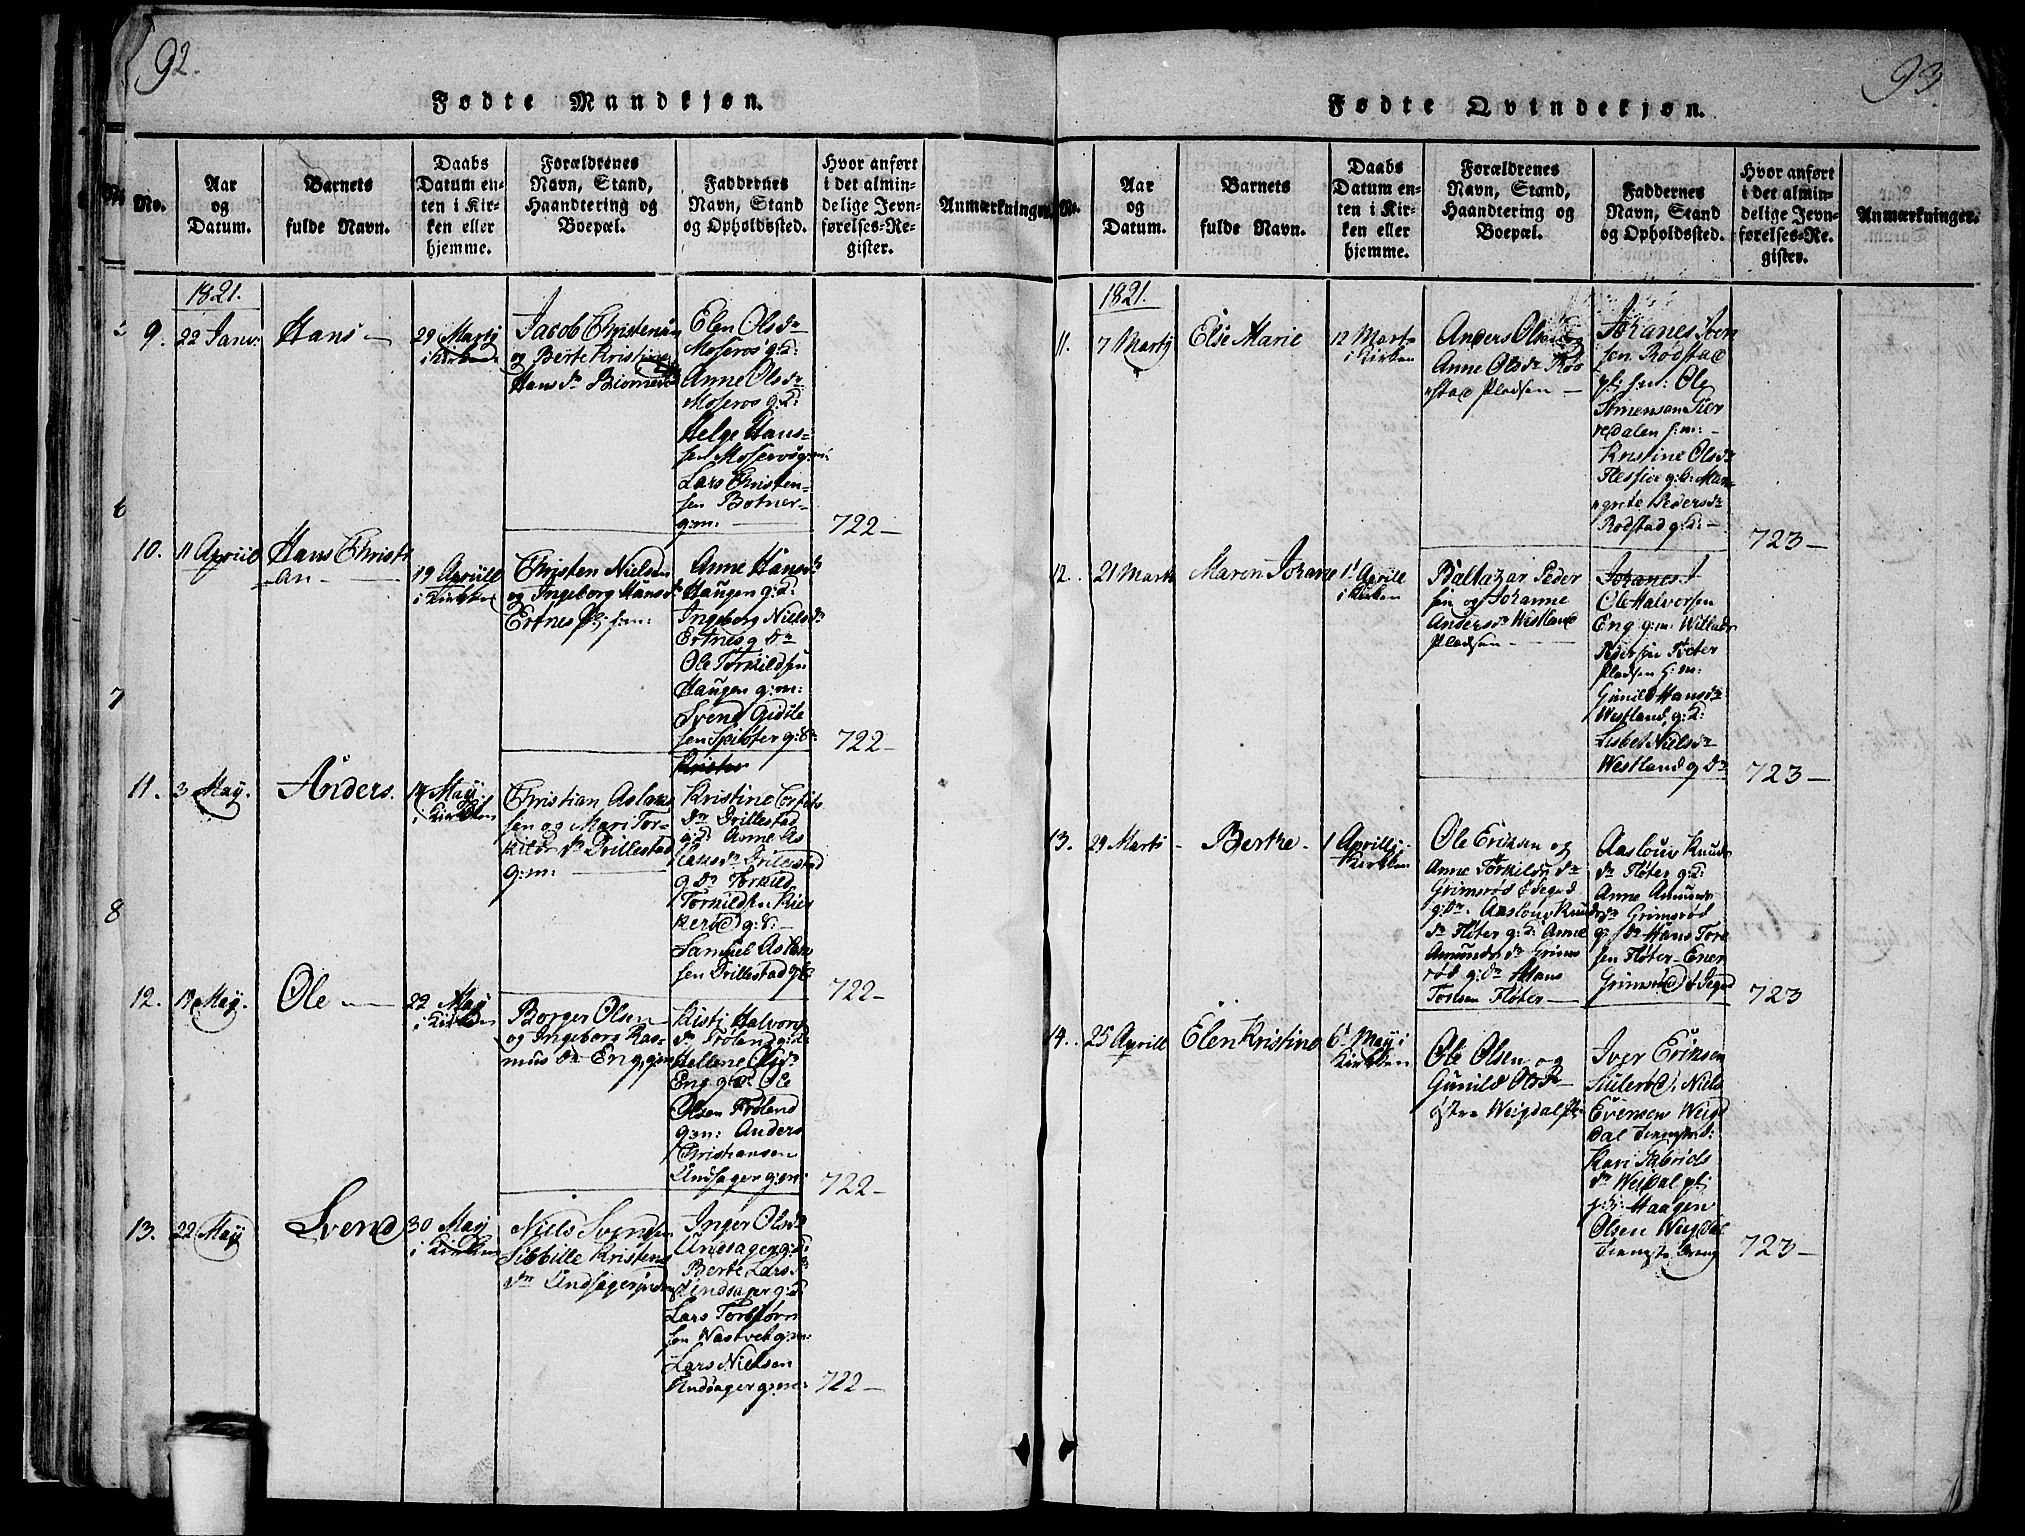 92.
Fødte Mandkjøn.
No.
Aar
og
Datum.
Barnets
fulde Navn.
Daabs
Datum en-
ten i Kir-
ken eller
hjemme.
Forældrenes
Navn, Stand,
Haandtering og
Boepæl.
Faddernes
Navn, Stand
og Opholdssted.
Hvor anført
i det almin-
delige Jevn-
førelses-Re-
gister.
Anmærkninger.
1821.
9. 22 Janv:
Hans
29 Martj
i Kirken
Jacob Christensen
og Berte Kristine
Hans dr
Elen Olsdr
Moserøs g: d:
Anne Olsdr
Moserøs g: d:
Helge Hans-
sen Moserøs g: m:
Lars Christen-
sen Botner
g: m:
722
10. 11 Apriil
Hans Christi
an
19 Apriill
i Kirken
Christen Nielsen
og Ingeborg Hansdr
Ertnes Pl: f: m:
Anne Hansdr
Haugen g: d:
Ingeborg Nielsdr
Ertnes g Dr
Ole Torkildsen
Haugen g: m:
Svend
722
11. 3 May.
Anders.
14 May
i Kirken
Christian Aslak
sen og Mari Tor-
kilds dr Drillestad
g: m:
Kristine
dr Drillestad
g: d Anne As
laks dr Drillestad
g Dr Torkild
Torkildsen
g: d:
Samuel Aslak
sen Drillestad
722
12. 19 May.
Ole
22 May
i Kirken
Borger Olsen
og Ingeborg Ras-
mus dr Eng
Kisti Halvors
dr Frøland g: d:
Hellene Olsdr
Eng g Dr Ole
Olsen Frøland
g: m: Anders
Christiansen
Undsager g: m:
722
13. 22 May
Svend
30 May
i Kirken
Niels Svendsen
Sibbille Kristens
dr Undsager
Inger Olsdr
Undsager g: d:
Berte Larsdr
Undsager g: d
Lars Torbjørn
sen Nastvet g: m:
Lars Nielsen
Undsager g: m:
722
93.
Fødte Qvindekjøn.
No.
Aar
og
Datum.
Barnets
fulde Navn.
Daabs
Datum en-
ten i Kir-
ken eller
hjemme.
Forældrenes
Navn, Stand,
Haandtering og
Boepæl.
Faddernes
Navn, Stand
og Opholdssted.
Hvor anført
i det almin-
delige Jevn-
førelses-Re-
gister.
Anmærkninger.
1821.
11. 7 Martj
Else Marie
12 Marts
i Kirken
Anders Olsen og
Anne Olsdr Rod
stad Pladsen
Johanes Iver
sen Rodstad
Ole
Simensen
Kristine Olsdr
Flesjøe g: d: Mar-
grete Pedersdr
Rodstad g: d:
723
12. 21 Marts
Maren Johane
1' Aprill
i Kirken
Baltazar Peder
sen og Johanne
Andersdr Westland
Pladsen
Ole Halvorsen
Eng g: m: Willads
Pedersen Fløter
Pladsen f: m:
Gunild Hansdr
Westland g: d:
Lisbet Nielsdr
Westland g Dr
723
13. 29 Marts
Berthe
1 Aprill i
Kirken
Ole Eriksen og
Anne Torkilds dr
Grimsrød Ødegd
g: Dr. Aaslouv Knuds
dr Fløter g: d: Anne
Amunds dr Grims
rød g: Dr Hans
Toresen Fløter
Aaslouv Knuds
dr Fløter g: d:
Anne Amunds
dr Grimsrød
g: Dr Hans Tore
sen Fløter
Grimsrød Ødegd
723
14. 25 Aprill
Elen Kristine
6' May i
Kirken
Ole Olsen og
Gunild Olsdr
østre Weigdal
Iver Eriksen
Niels
Evensen Weig
dal
Kari Jabriels
dr Weigdal
Haagen
Olsen Weigdal
723